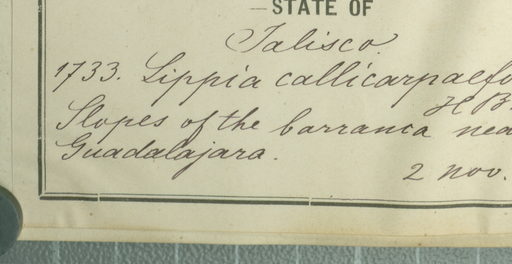 STATE OF
Jalisco.
1733. Lippia callicarpaefo
H B.
Slopes of the barranca nea
Guadalajara.
2 nov.